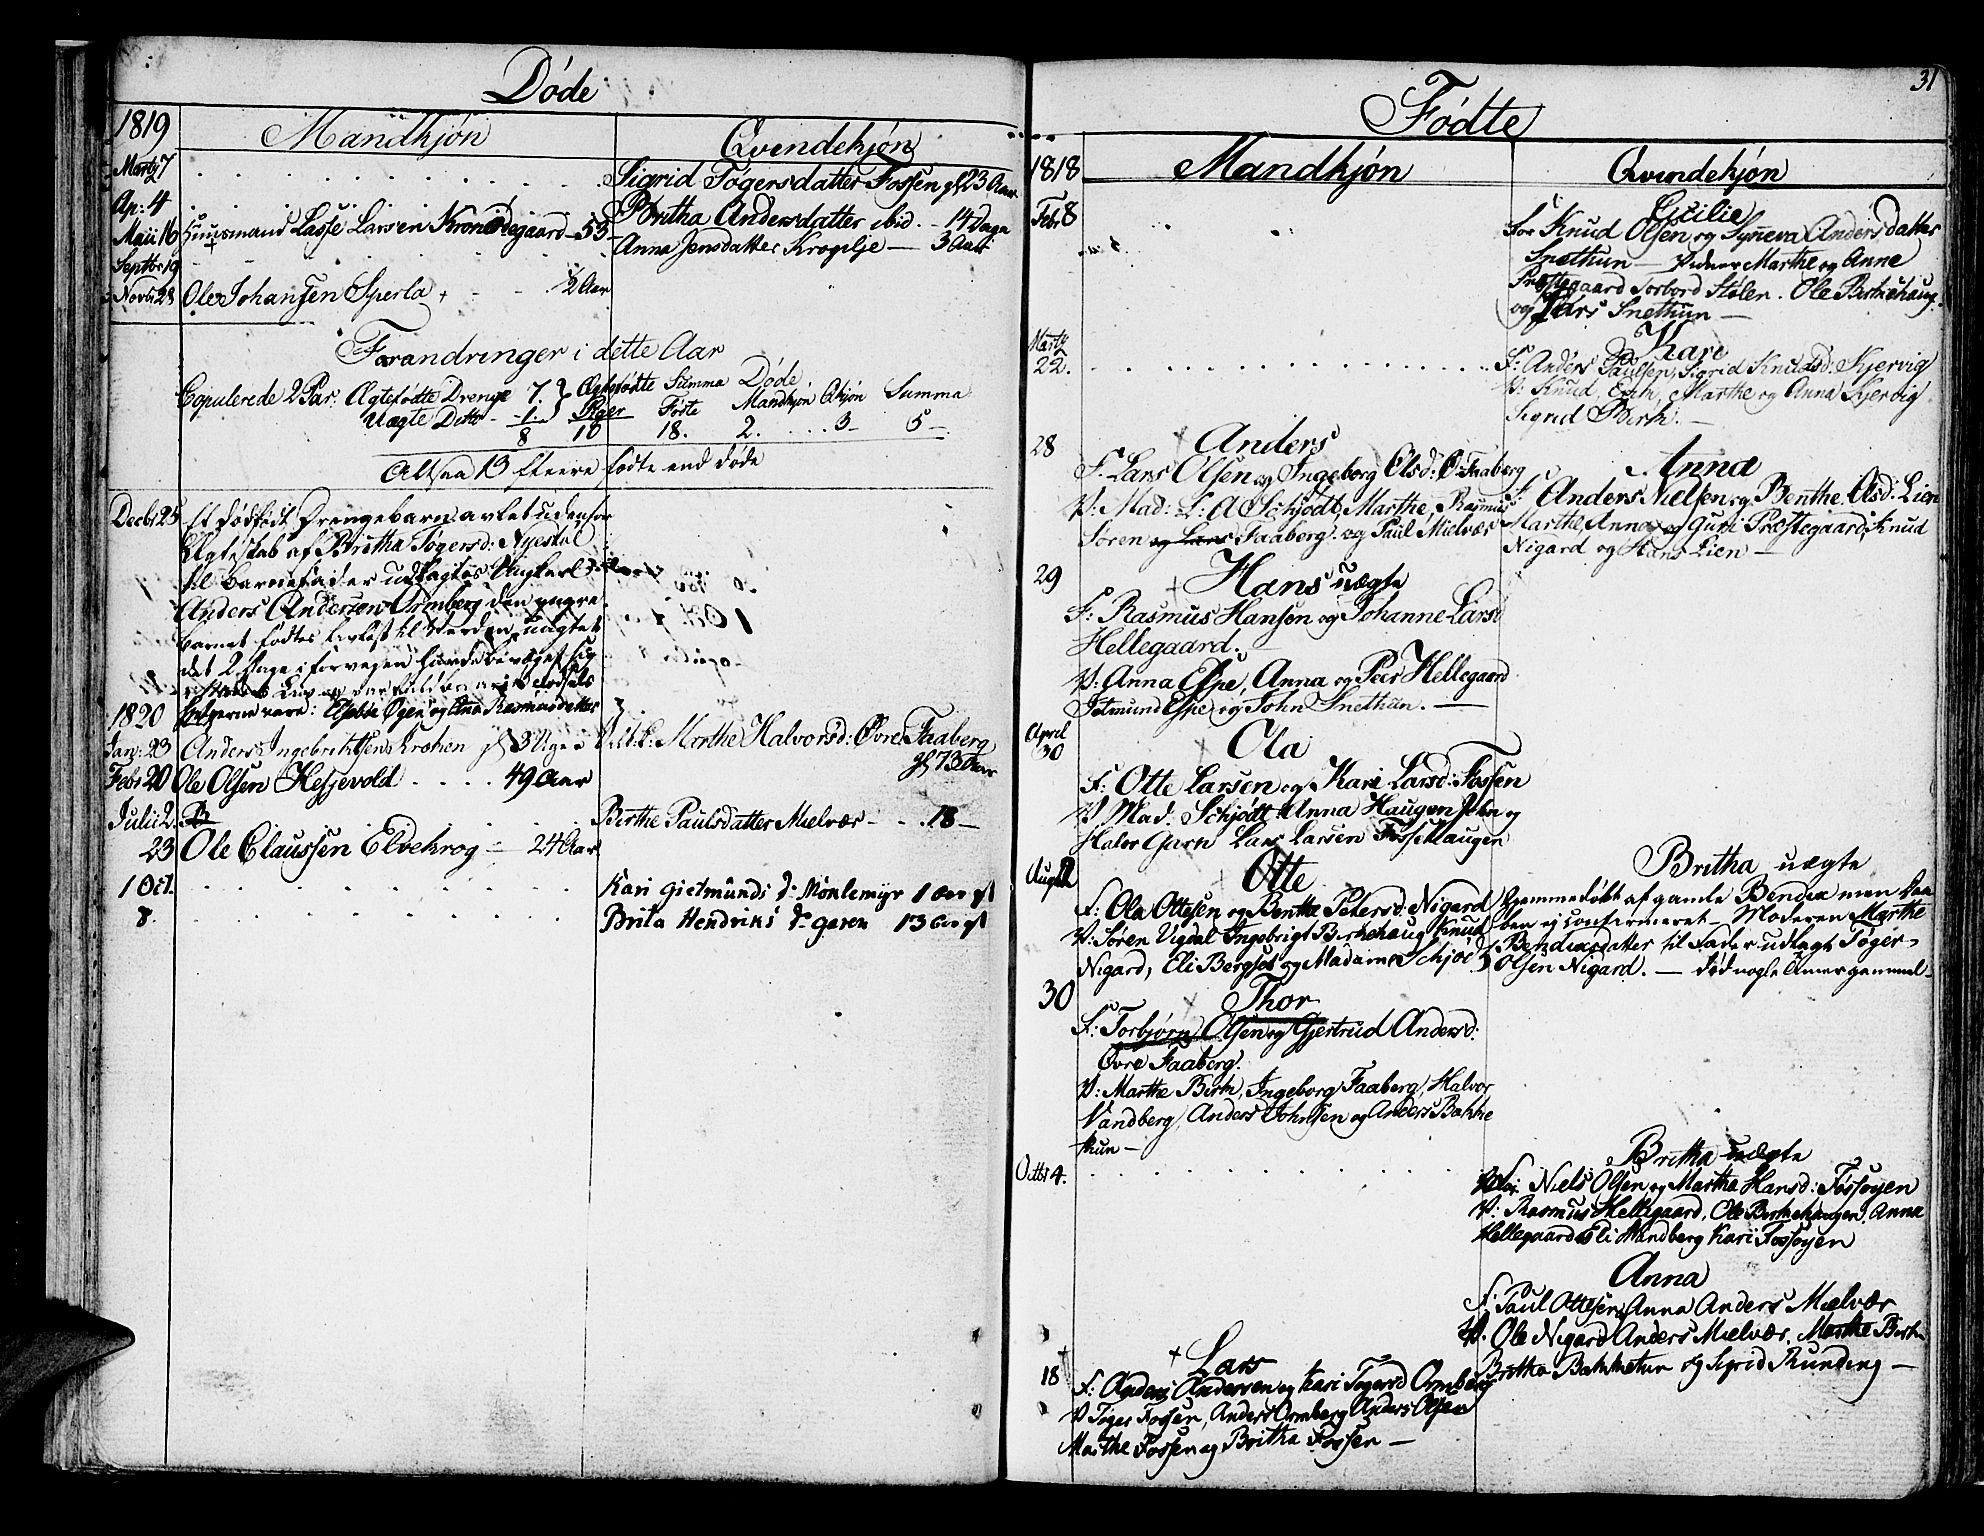 Døde
1819
Mandkjøn
Qvendekjøn
Marty 7
Sigrid Tøgersdatter Fossen gl 23 Aar
Ap: 4
Britha Andersdatter ibid. - 14 Dage
Maii 16 Huusmand Lasse Larsen Kroni Degaard - 53 -
Anna Jensdatter Krogilje - 3 Aar
Septbr 19
Novbr 28 Ole Johansen Sperla + - - 1/2 Aar
Forandringer i dette Aar
Copulerede 2 Par. Ægtefødte Drenge 7. } Ægtefødte Summa Døde
Uægte Ditto - 1. } Piger Fødte Mandkjøn Qkjøn Summa
8 10 18. 2. . . . . 3 - 5 -
Altsaa 13 fleere fødte end døde
Decbr 25 Et dødfødt Drengebarn avlet udenfor
Ægteskab af Britha Tøgersd: Nyestøl
til barnefader udlagdes Ungkarl
Anders Anderson Ormberg den yngre.
barnet fødtes livløst til Verden, uagtet
det 2 Dage i forveyen havde bevæget sig
1820
vare: Elsebe Øyen og Ana Rasmusdatter
Jan: 23 Anders Ingebrihtsens Krohen gl 3 Uger
Marthe Halvorsd: Øvre Faaberg
gl 73 Aar
Febr 20 Ole Olsen Hesjevold . . . . 49 Aar
Julii 2. B
Berthe Paulsdatter Mielvær - . . 18 -
23 Ole Claussen Elvekrog - 24 Aar
1 Oct.
Kari gietmunds d- Mønlemyr 1 Aar gl
8.
Brita Hendriks d- garen 13 Aar gl
31
Fødte
1818
Mandkjøn
Qvendekjøn
Febr 8
Cicilie
For Knud Olsen og Syneva Andersdatter
Snethun - Vidner Marthe og Anne
Prestegaard Torbord Stølen. Ole Birkehaug
og Lars Snethun -
Marty
22.
Kari
F: Anders Paulsen, Sigrid Knudsd: Kjervig
V: Knud, Erik, Marthe og Anna Kjervig
Sigrid Birk. -
28
Anders
F. Lars Olsen og Ingeborg Olsd: Ø: Faaberg
V: Mad: L: A Schjødt, Marthe, Rasmus
Søren og Lars Faaberg. og Paul Mielvær
Anna
F. Anders Nielsen og Benthe Olsd: Lien
Marthe, Anna og Guri Prestegaard, Knud
Nigard og Hans Lien -
29
Hans uægte
F: Rasmus Hansen og Johanne Larsd
Hellegaard. -
V: Anna Espe, Anna og Peer Hellegaard
Jetmund Espe og John Snethun. -
April
30
Ola
F: Otte Larsen og Kari Larsd: Fossen
V Mad. Schjødt Anna Haugen John og
Halvor Garn Lars Larsen Fosse Haugen
Aug 2
Otte
F: Ola Ottesen og Benthe Petersd: Nigard
V: Søren Vigdal Ingebrigt Birkehaug Knud
Nigard, Eli Bergset og Madame Schjødt
Britha uægte
hjemmedøbt af gamle Bendix men Daa
ben ej confirmeret - Moderen Marthe
Bendixdatter til Fader udlagt Tøger
Olsen Nigard. - død nogle Timer gammel -
30
Thor
F: Torbjørn Olsen og Gjertrud Andersd:
Øvre Faaberg.
V: Marthe Birk, Ingeborg Faaberg, Halvor
Vandberg, Anders Johnsen og Anders Bakke
thun -
Octbr 4.
Britha uægte
Niels Olsen og Martha Hansd: Fossøyen
V: Rasmus Hellegaard, Ole Birkehaugen, Anna
Hellegaard Eli Wandberg Kari Fossøyen
Anna
F: Paul Ottesen, Anna Anders Mielvær
V. Ole Nigard Anders Mielvær, Marthe Birk
Britha Bakketun og Sigrid Runding -
18
Lars
F: Anders Andersen og Kari Tøgersd Ormberg
V Tøger Fossen, Anders Ormberg Anders Olsen
Marthe Fossen og Britha Fossen -